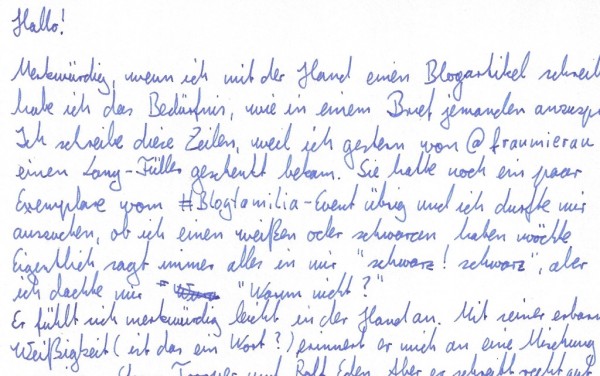 Hallo!
Merkwürdig, wenn ich mit der Hand einen Blogartikel schreib
habe ich das Bedürfnis, wie in einem Brief jemanden anzusp
Ich schreibe diese Zeilen, weil ich gestern von @fraumierau
einen Lamy-Füller geschenkt bekam. Sie hatte noch ein paar
Exemplare vom #Blogfamilia-Event übrig und ich durfte mir
aussuchen, ob ich einen weißen oder schwarzen haben möchte
Eigentlich sagt immer alles in mir "schwarz! schwarz", aber
ich dachte mir "Warum nicht?"
Er fühlt sich merkwürdig leicht in der Hand an. Mit seiner erbarm
Weißigkeit (ist das ein Wort?) erinnert er mich an eine Mischung
und Rolf Eden. Aber er schreibt recht gut